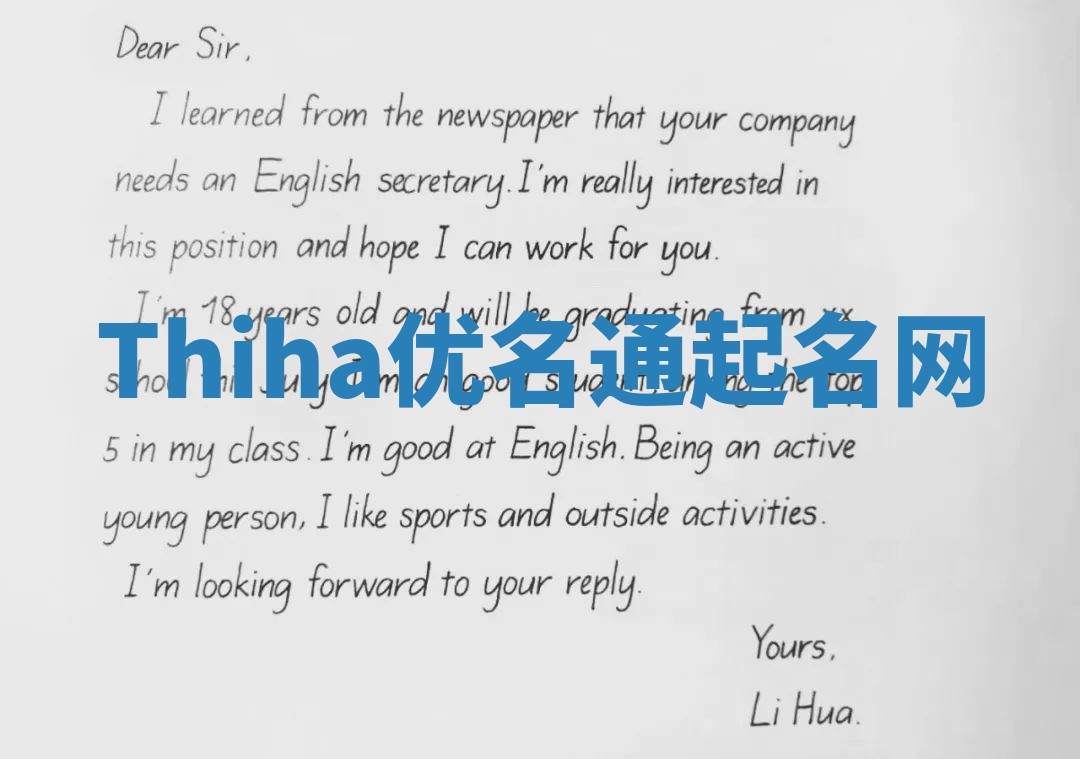 Dear Sir,
I learned from the newspaper that your company
needs an English secretary. I'm really interested in
this position and hope I can work for you.
I'm 18 years old and will be graduating from xx
Thiha优名通起名网
school this July. I'm a good student, among the top
5 in my class. I'm good at English. Being an active
young person, I like sports and outside activities.
I'm looking forward to your reply.
Yours,
Li Hua.